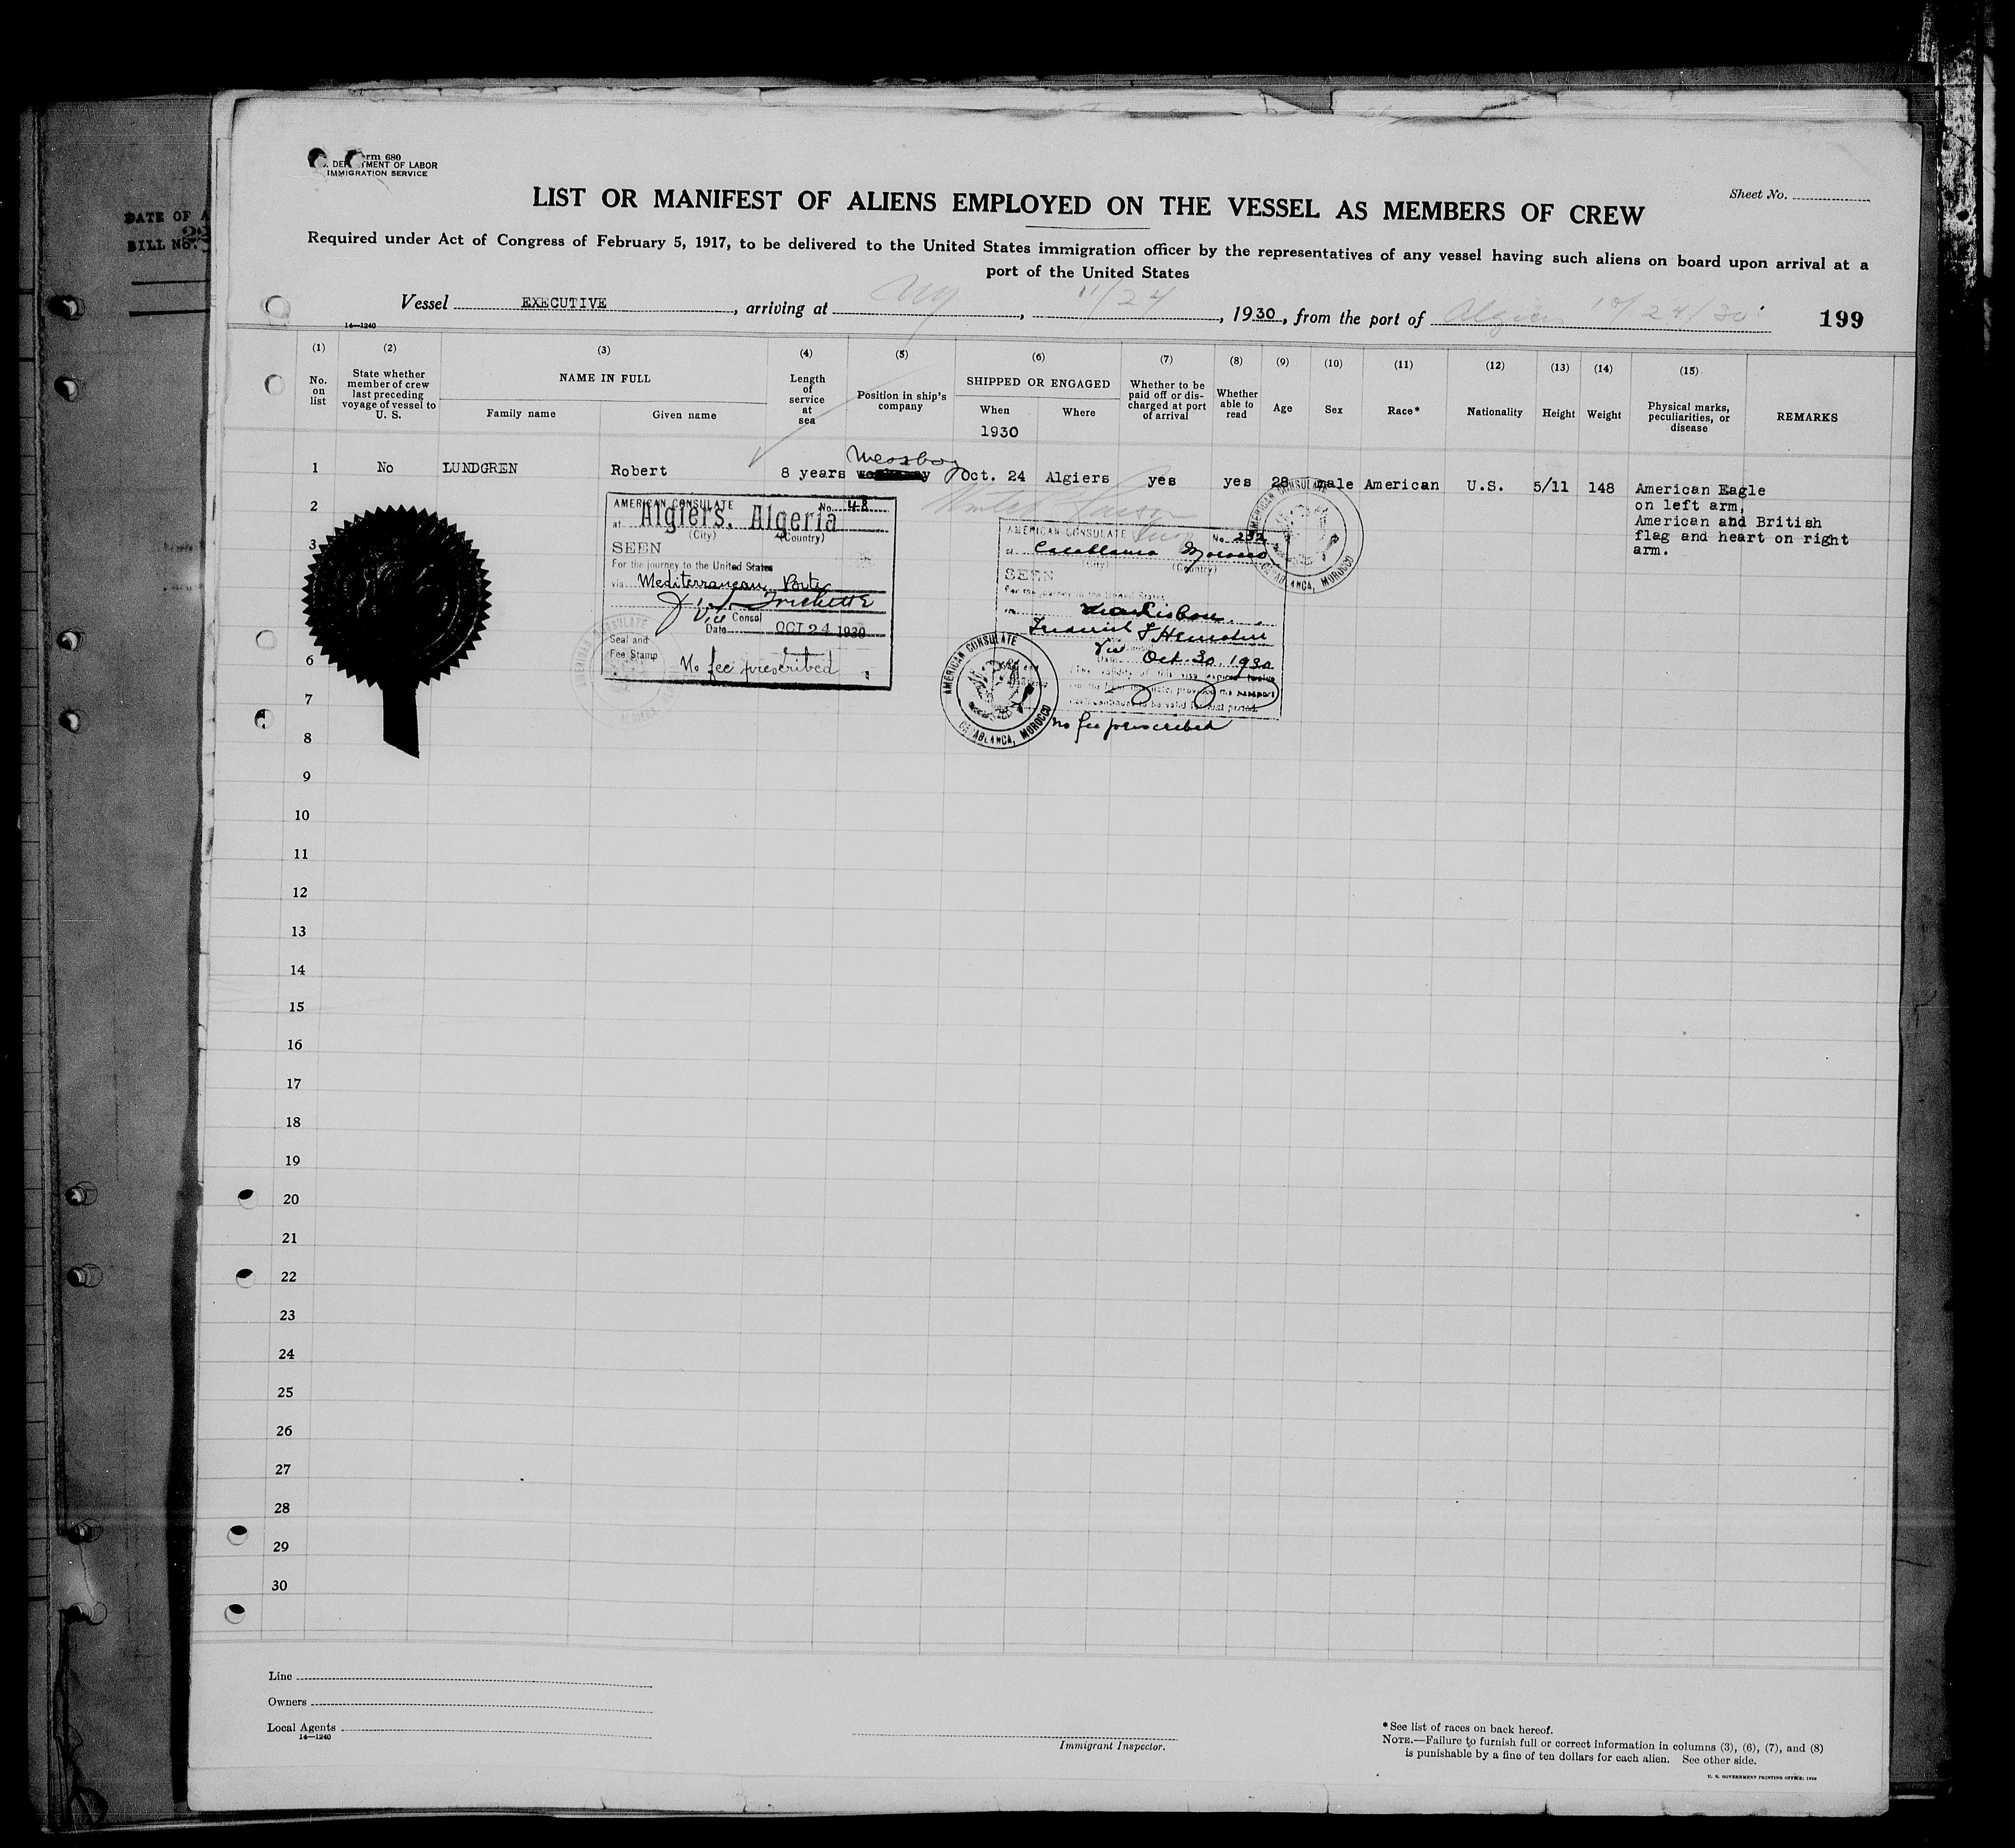 Form 680
U. S. DEPARTMENT OF LABOR
IMMIGRATION SERVICE
DATE OF A
BILL No.
Sheet No.
LIST OR MANIFEST OF ALIENS EMPLOYED ON THE VESSEL AS MEMBERS OF CREW
Required under Act of Congress of February 5, 1917, to be delivered to the United States immigration officer by the representatives of any vessel having such aliens on board upon arrival at a
port of the United States
Vessel EXECUTIVE, arriving at NY, 11/24, 1930, from the port of Algiers 10/24/30 199
14—1240
(1) (2) (3) (4) (5) (6) (7) (8) (9) (10) (11) (12) (13) (14) (15)
No. on list
State whether member of crew last preceding voyage of vessel to U. S.
NAME IN FULL
Family name Given name
Length of service at sea
Position in ship's company
SHIPPED OR ENGAGED
When Where
1930
Whether to be paid off or discharged at port of arrival
Whether able to read
Age
Sex
Race*
Nationality
Height
Weight
Physical marks, peculiarities, or disease
REMARKS
Messboy
1 No LUNDGREN Robert 8 years Oct. 24 Algiers yes yes 28 male American U.S. 5/11 148 American Eagle
on left arm,
American and British
flag and heart on right
arm.
AMERICAN CONSULATE No. 48
at Algiers, Algeria
(City) (Country)
SEEN
For the journey to the United States
via Mediterranean Ports
Vice Consul
Date OCT 24 1930
Seal and
Fee Stamp No fee prescribed
AMERICAN CONSULATE No. 232
at Casablanca Morocco
(City) (Country)
SEEN
For the journey to the United States
via Lisbon
Vice
Oct. 30, 1930
no fee prescribed
AMERICAN CONSULATE
CASABLANCA, MOROCCO
AMERICAN CONSULATE
CASABLANCA, MOROCCO
2
3
6
7
8
9
10
11
12
13
14
15
16
17
18
19
20
21
22
23
24
25
26
27
28
29
30
Line
Owners
Local Agents
14—1240
Immigrant Inspector.
*See list of races on back hereof.
NOTE.—Failure to furnish full or correct information in columns (3), (6), (7), and (8)
is punishable by a fine of ten dollars for each alien. See other side.
U. S. GOVERNMENT PRINTING OFFICE: 1929